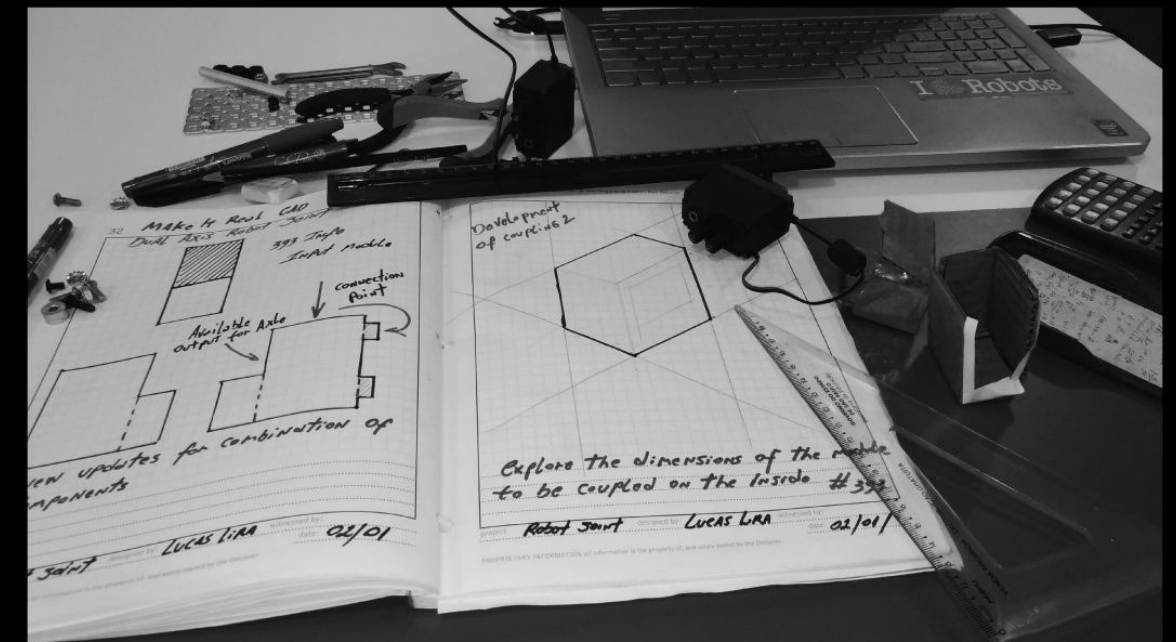 32
MAKe It Real CAD
DUAL Axis Robot Joint
393 Info
Input Module
connection
Point
Available
output for Axle
new updates for combination of
mponents
Joint
designed by:
LUCAS LIRA
witnessed by:
date:
02/01
Development
of coupling 2
Explore the dimensions of the module
to be coupled on the Inside #393
project
Robot Joint
designed by
LUCAS LIRA
witnessed by:
date:
02/01/
PROPRIETARY INFORMATION all information is the property of, and solely owned by the Designer.
I Robots